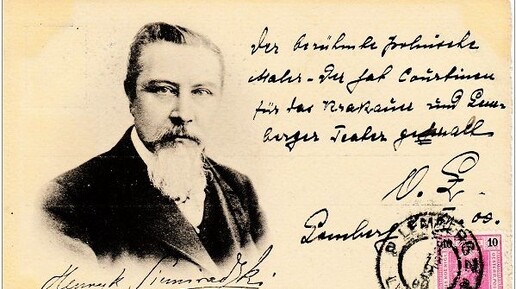 Der berühmte polnische
Maler - Der hat Courtinen
für das Krakauer und Lem-
berger Teater gemalt
Lemberg
Henryk Siemiradzki
LEMBERG
10